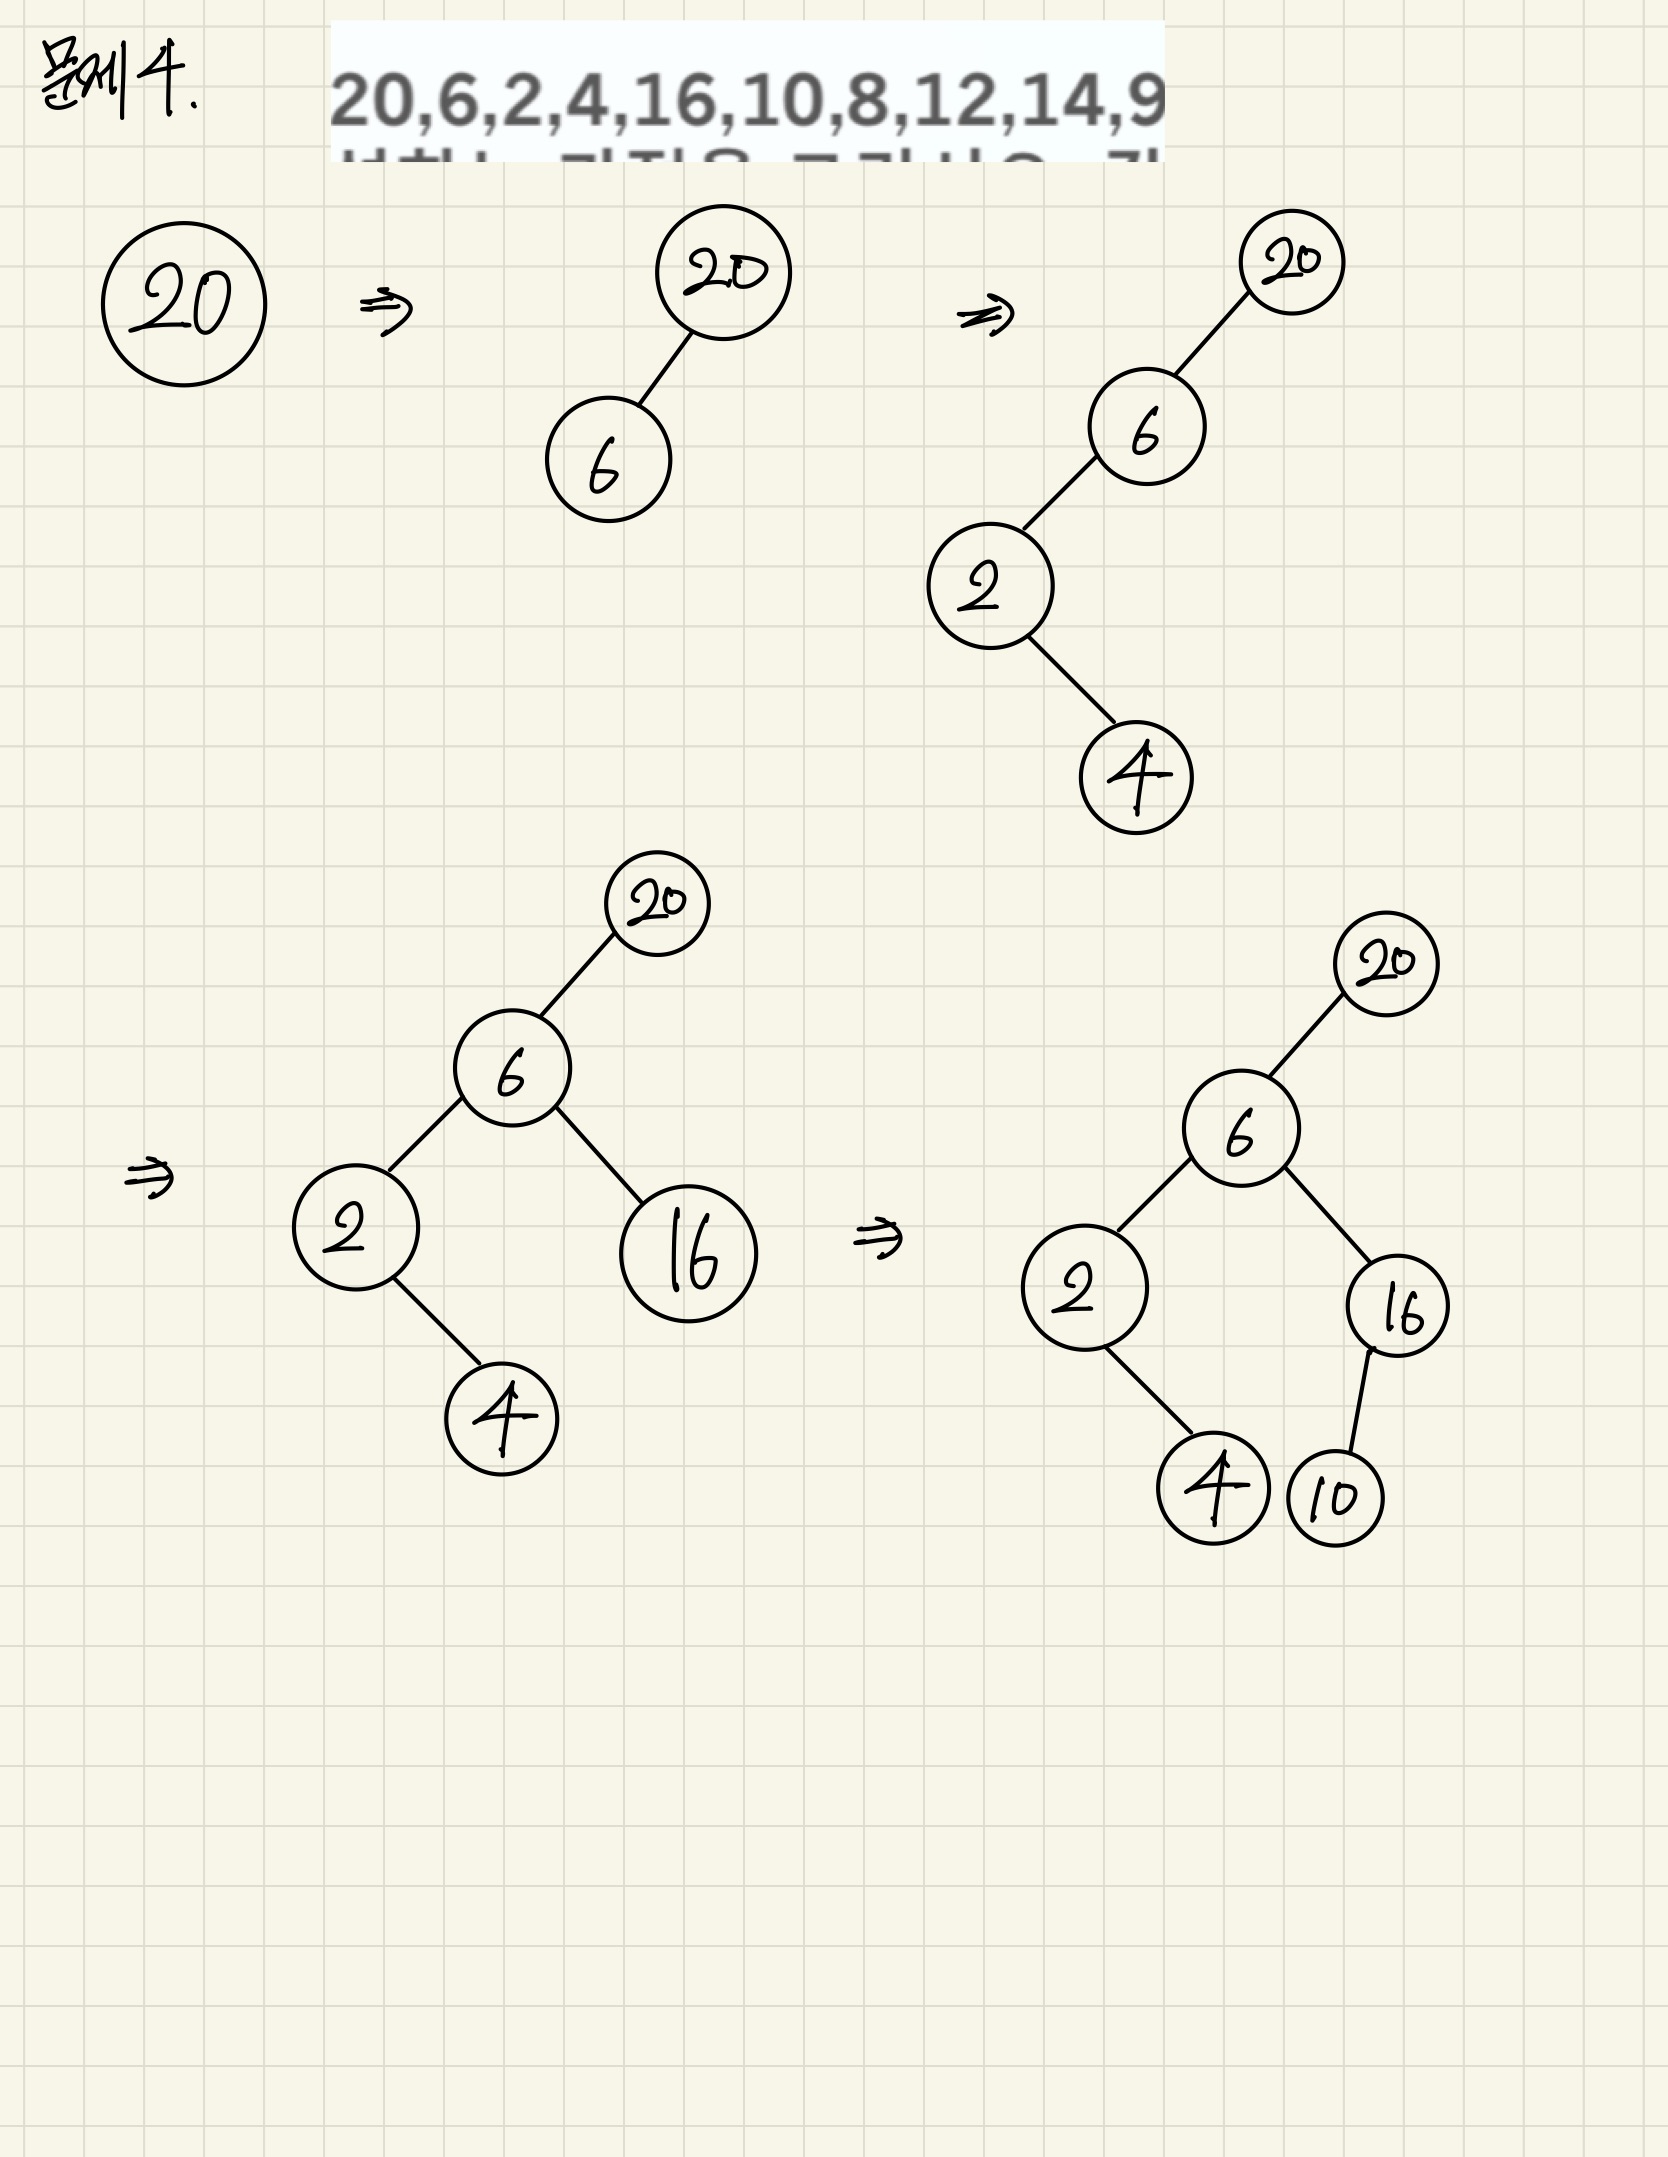 문제 4.
20,6,2,4,16,10,8,12,14,9
20 ⇒ 20 ⇒ 20
6
6
2
4
20
20
6
6
⇒ 2 16 ⇒ 2 16
4
4 10